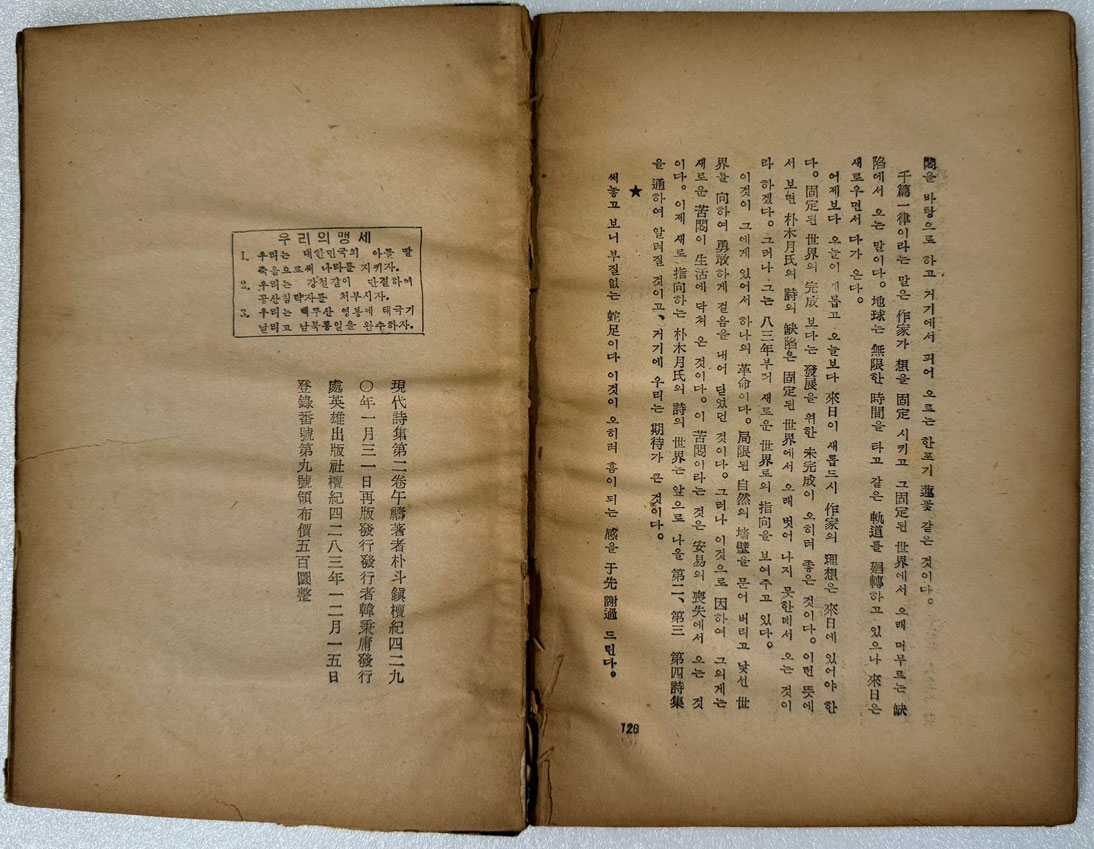 悶을 바탕으로 하고 거기에서 피어 오르는 한포기 蓮꽃 같은 것이다.
千篇一律이라는 말은 作家가 想을 固定 시키고 그固定된 世界에서 오래 머무르는 缺
陷에서 오는 말이다. 地球는 無限한 時間을 타고 같은 軌道를 廻轉하고 있으나 來日은
새로우면서 다가 온다.
어제보다 오늘이 새롭고 오늘보다 來日이 새롭드시 作家의 理想은 來日에 있어야 한
다. 固定된 世界의 完成 보다는 發展을 위한 未完成이 오히려 좋은 것이다. 이런 뜻에
서 보면 朴木月氏의 詩의 缺陷은 固定된 世界에서 오래 벗어 나지 못한데서 오는 것이
라 하겠다. 그러나 그는 八三年부터 새로운 世界로의 指向을 보여주고 있다.
이것이 그에게 있어서 하나의 革命이다. 局限된 自然의 墻壁을 문어 버리고 낯선 世
界를 向하여 勇敢하게 걸음을 내어 딛였던 것이다. 그러나 이것으로 因하여 그의게는
새로운 苦悶이 生活에 닥쳐 온 것이다. 이 苦悶이라는 것은 安易의 喪失에서 오는 것
이다. 이제 새로 指向하는 朴木月氏의 詩의 世界는 앞으로 나올 第二、第三 第四詩集
을 通하여 알려질 것이고、거기에 우리는 期待가 큰 것이다.
★
써놓고 보니 부질없는 蛇足이다 이것이 오히려 흠이 되는 感을 于先 謝過 드린다.
126
우리의맹세
1. 우리는 대한민국의 아들 딸
죽음으로써 나라를 지키자.
2. 우리는 강철같이 단결하여
공산침략자를 처부시자.
3. 우리는 백두산 영봉에 태극기
날리고 남북통일을 완수하자.
現代詩集第二卷午禱著者朴斗鎭檀紀四二九
〇年一月三一日再版發行發行者韓秉庸發行
處英雄出版社檀紀四二八三年一二月一五日
登錄番號第九號領布價五百圜整